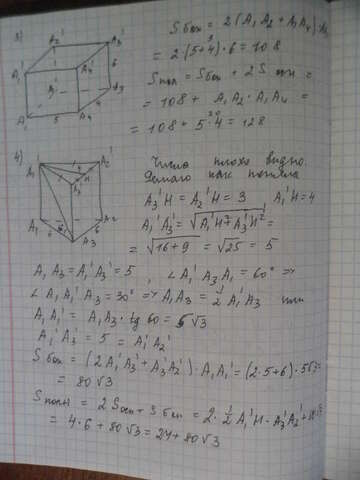 3)
A₂' A₃'
A₁' A₄' 6
A₁ 5 A₄ 4 A₃
S бок = 2(A₁A₂ + A₁A₄)·
= 2·(5+4)·6 = 108
S полн = S бок + 2 S осн =
= 108 + A₁A₂·A₁A₄ =
= 108 + 5·4 = 128
4)
A₁' A₂'
4 H
A₃'
A₁ A₂
6
A₃
Число плохо видно.
Делаю как поняла
A₃'H = A₂'H = 3 A₁'H = 4
A₁'A₃' = √A₁'H² + A₃'H² =
= √16+9 = √25 = 5
A₁A₃ = A₁'A₃' = 5 , ∠ A₁'A₃A₁ = 60° =>
∠ A₁A₁'A₃ = 30° => A₁A₃ = ½ A₁'A₃ или
A₁A₁' = A₁A₃ · tg 60 = 5√3
A₁'A₃' = 5 = A₁'A₂'
S бок = (2A₁'A₃' + A₃'A₂')·A₁A₁' = (2·5+6)·5√3
= 80√3
S полн = 2 S осн + S бок = 2·½ A₁'H·A₃'A₂' +
= 4·6 + 80√3 = 24 + 80√3